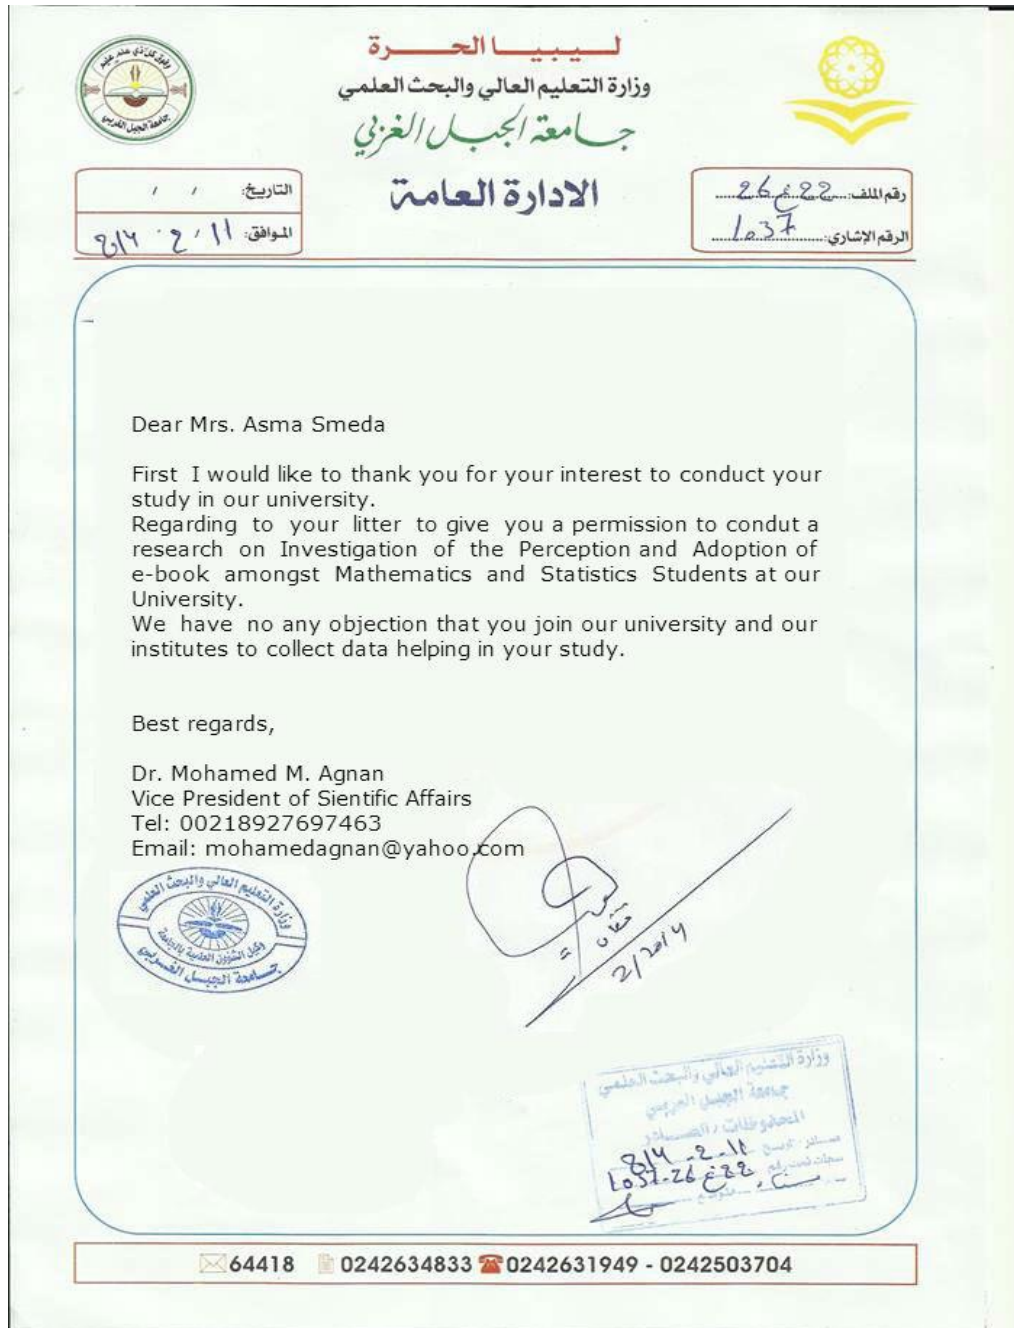 وفوق كل ذي علم عليم
جامعة الجبل الغربي
لـــيـبـيــــا الحـــــــرة
وزارة التعليم العالي والبحث العلمي
جـــامعة الجبــل الغربي
الادارة العامة
التاريخ: / /
الموافق: 11 / 2
رقم الملف: 22 غ 26
الرقم الإشاري: 1037
Dear Mrs. Asma Smeda
First I would like to thank you for your interest to conduct your
study in our university.
Regarding to your litter to give you a permission to condut a
research on Investigation of the Perception and Adoption of
e-book amongst Mathematics and Statistics Students at our
University.
We have no any objection that you join our university and our
institutes to collect data helping in your study.
Best regards,
Dr. Mohamed M. Agnan
Vice President of Sientific Affairs
Tel: 00218927697463
Email: mohamedagnan@yahoo.com
وزارة التعليم العالي والبحث العلمي
وكيل الشؤون العلمية بالجامعة
جـــامعة الجبـــل الغـــربي
2/2014
وزارة التعليم العالي والبحث العلمي
جامعة الجبل الغربي
المحفوظات / الصـــادر
11-2-
22 غ 26-1037
64418 0242634833 0242631949 - 0242503704